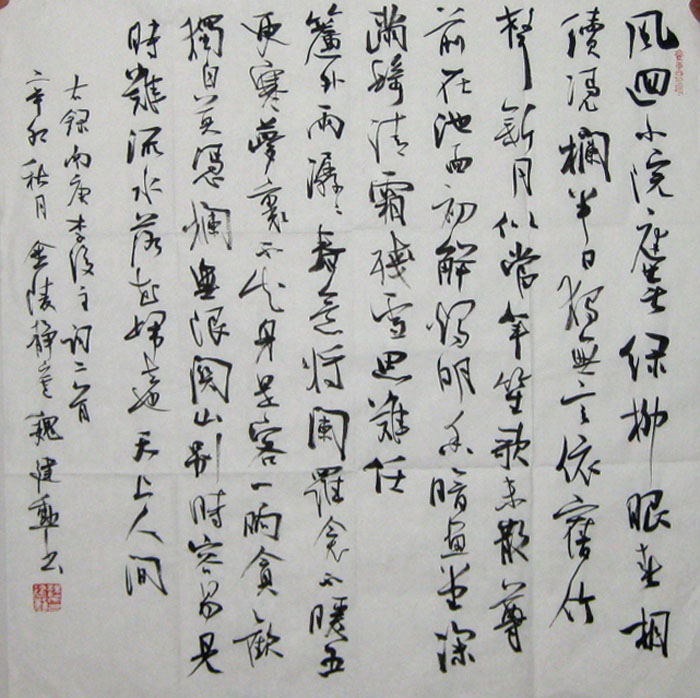 風迴小院庭蕪绿柳眼春相
續憑欄半日獨無言依舊竹
聲新月似當年笙歌未散尊
前在池面初解燭明香暗畫堂深
滿鬢清霜殘雪思難任
簾外雨潺〻春意将闌羅衾不暖五
更寒夢裏不知身是客一晌貪歡
獨自莫憑爛無限関山别時容易見
時難流水落花歸天上人間
録南唐李後主詞二首
辛卯秋月金陵静魏建勳书